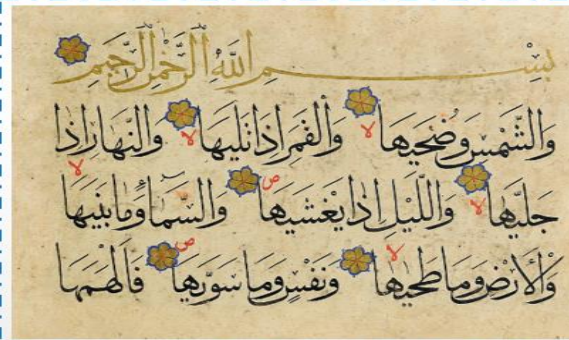 بِسْمِ اللَّهِ الرَّحْمَٰنِ الرَّحِيمِ
وَالشَّمْسِ وَضُحَيٰهَا لا وَالْقَمَرِ إِذَا تَلَيٰهَا لا وَالنَّهَارِ إِذَا
جَلَّيٰهَا لا وَاللَّيْلِ إِذَا يَغْشَيٰهَا ص وَالسَّمَاءِ وَمَا بَنَيٰهَا لا
وَالْأَرْضِ وَمَا طَحَيٰهَا لا وَنَفْسٍ وَمَا سَوَّيٰهَا ص فَأَلْهَمَهَا